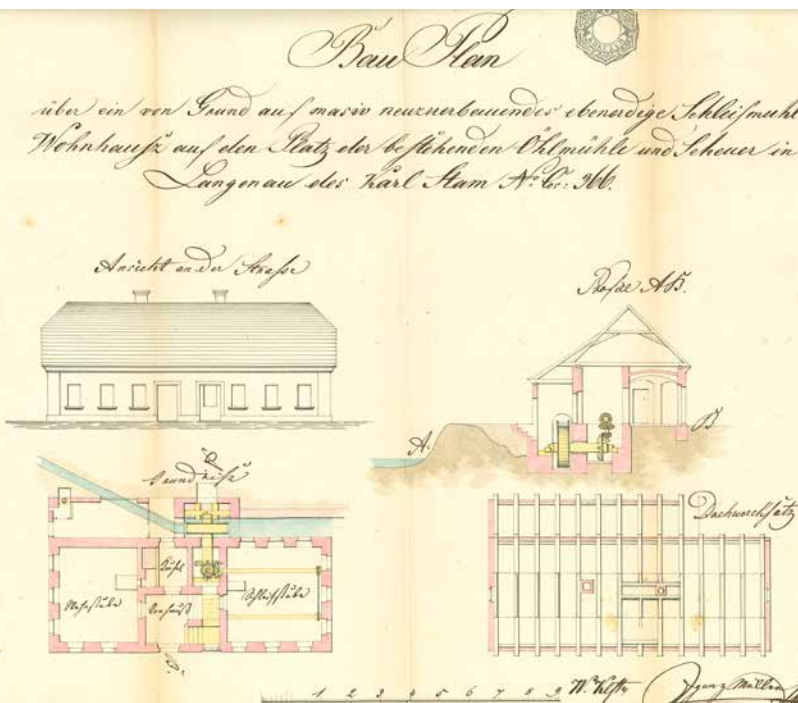 Bau Plan
über ein von Grund auf masiv neuzuerbauendes ebenerdige Schleifmuhl
Wohnhauß auf den Platz der bestehenden Öhlmühle und Scheuer in
Langenau des Karl Stam No Cs: 366.
Ansicht an der Strasse
Profil AB.
A.
B
A
Grundriß
Dachwerchsatz
Küchel
Wohnstube
Vorhauß
Schleifstube
B.
1 2 3 4 5 6 7 8 9 W. Klftr
Ignaz Müller